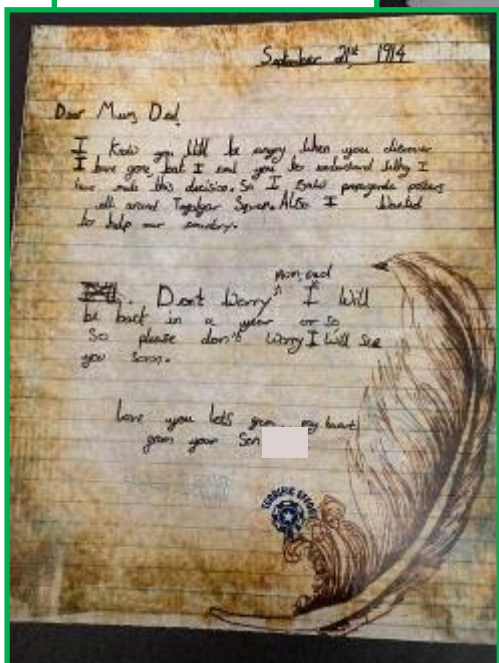 September 21st, 1914
Dear Mum, Dad,
I Know you Will be angry When you discover
I have gone, but I end you to understand Why I
have made this decision. So I saw propaganda posters
all around Tragalgar Square. Also I Wanted
to help our country.
mum, dad
Dont Worry I Will
be back in a year or so
So please don't Worry I Will See
you Soon.
Love you lots from my heart
from your Son
TERRIFIC EFFORT